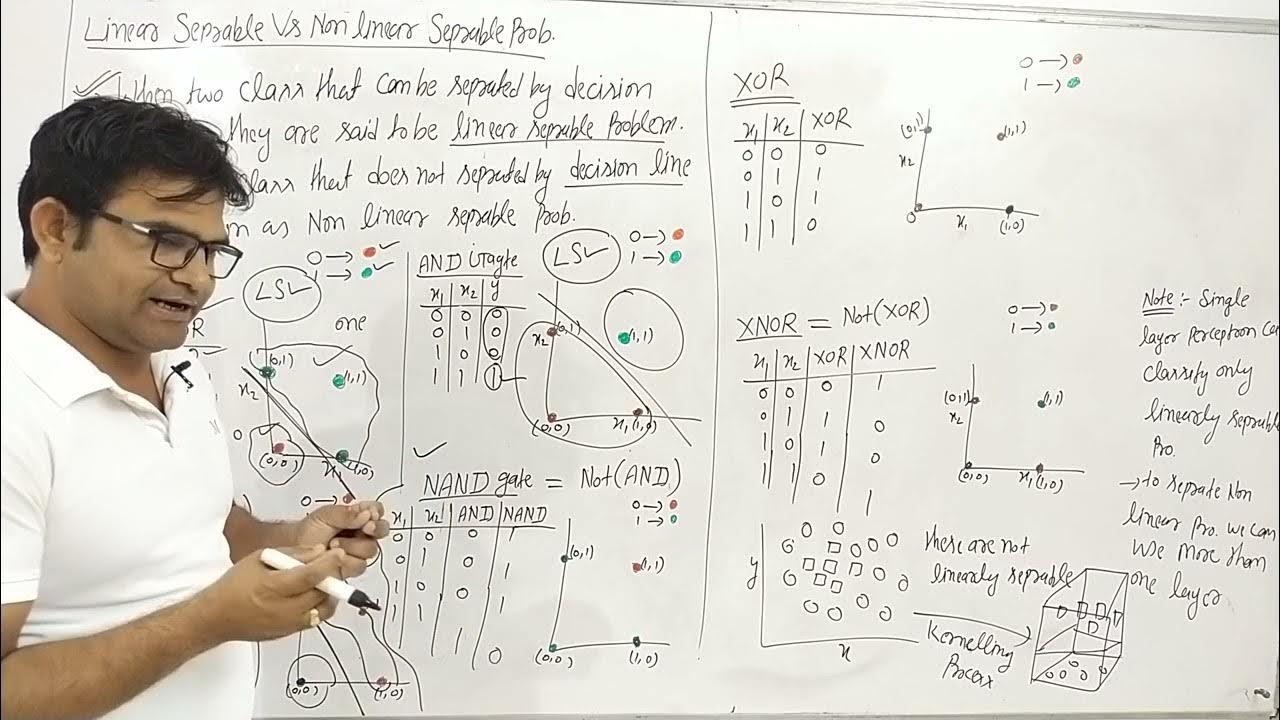 Linear Seprable Vs Non linear Seprable Prob.
When two class that can be seprated by decision
they are said to be linear seprable Problem.
class that does not seprated by decision line
as Non linear seprable Prob.
0 →
1 →
LS
one
(0,1)
(1,1)
x2
0
(0,0)
x1
(1,0)
0 →
(0,0)
(1,0)
AND
x1 x2 y
0 0 0
0 1 0
1 0 0
1 1 1
LS
0 →
1 →
x2
(0,1)
(1,1)
(0,0)
x1 (1,0)
NAND gate = Not(AND)
x1 x2 AND NAND
0 0 0 1
0 1 0 1
1 0 0 1
1 1 1 0
0 →
1 →
(0,1)
(1,1)
(0,0)
(1,0)
XOR
x1 x2 XOR
0 0 0
0 1 1
1 0 1
1 1 0
0 →
1 →
(0,1)
(1,1)
x2
0
x1
(1,0)
XNOR = Not(XOR)
x1 x2 XOR XNOR
0 0 0 1
0 1 1 0
1 0 1 0
1 1 0 1
0 →
1 →
(0,1)
x2
(1,1)
(0,0)
x1 (1,0)
y
x
these are not
linearly seprable
Kernelling
Process
Note :- Single
layer perceptron
classify only
linearly seprable
Pro.
→ to seprate Non
linear Pro. we can
use more than
one layer